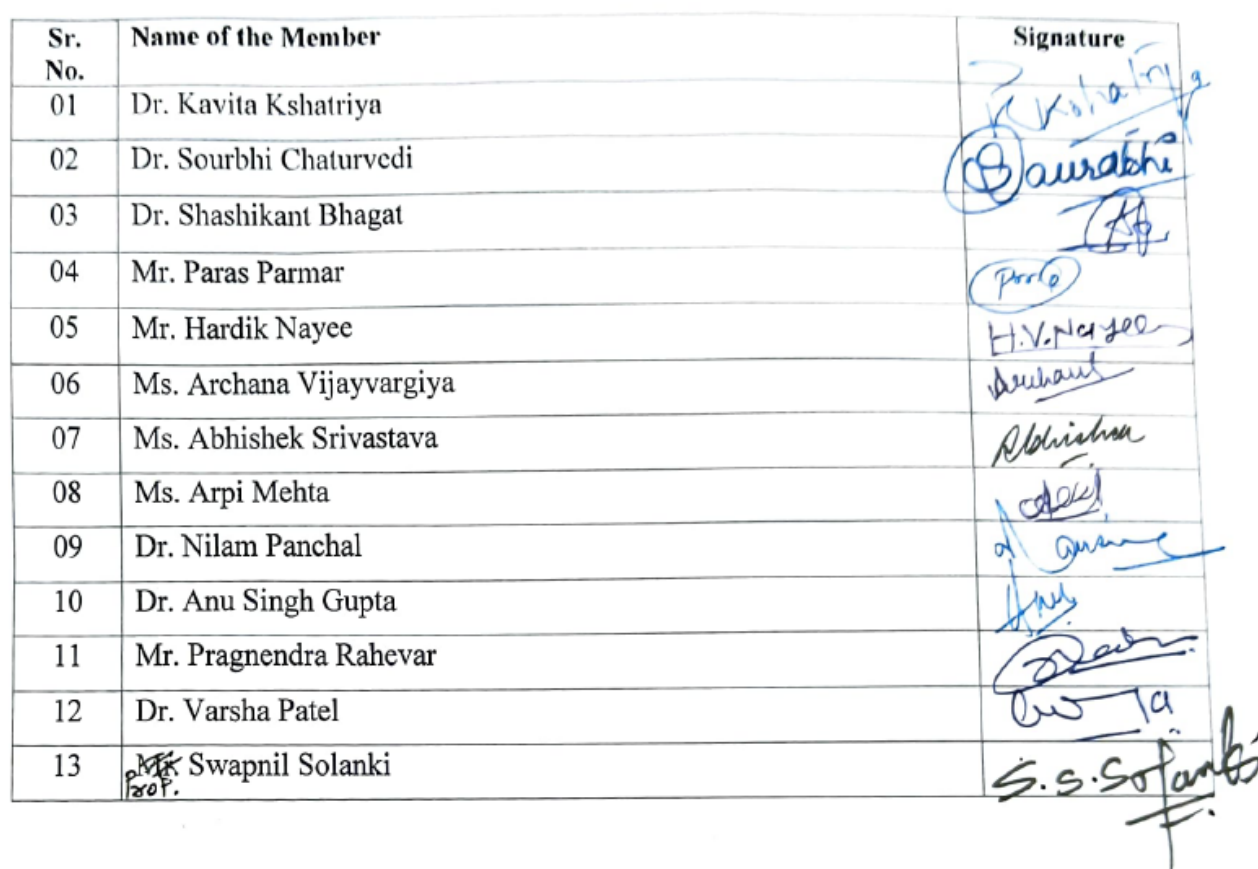 Sr. No. Name of the Member Signature
01 Dr. Kavita Kshatriya K Kshatriya
02 Dr. Sourbhi Chaturvedi Saurabhi
03 Dr. Shashikant Bhagat
04 Mr. Paras Parmar
05 Mr. Hardik Nayee H.V.Nayee
06 Ms. Archana Vijayvargiya
07 Ms. Abhishek Srivastava
08 Ms. Arpi Mehta
09 Dr. Nilam Panchal
10 Dr. Anu Singh Gupta
11 Mr. Pragnendra Rahevar
12 Dr. Varsha Patel
13 Prof. Swapnil Solanki S.S.Solanki